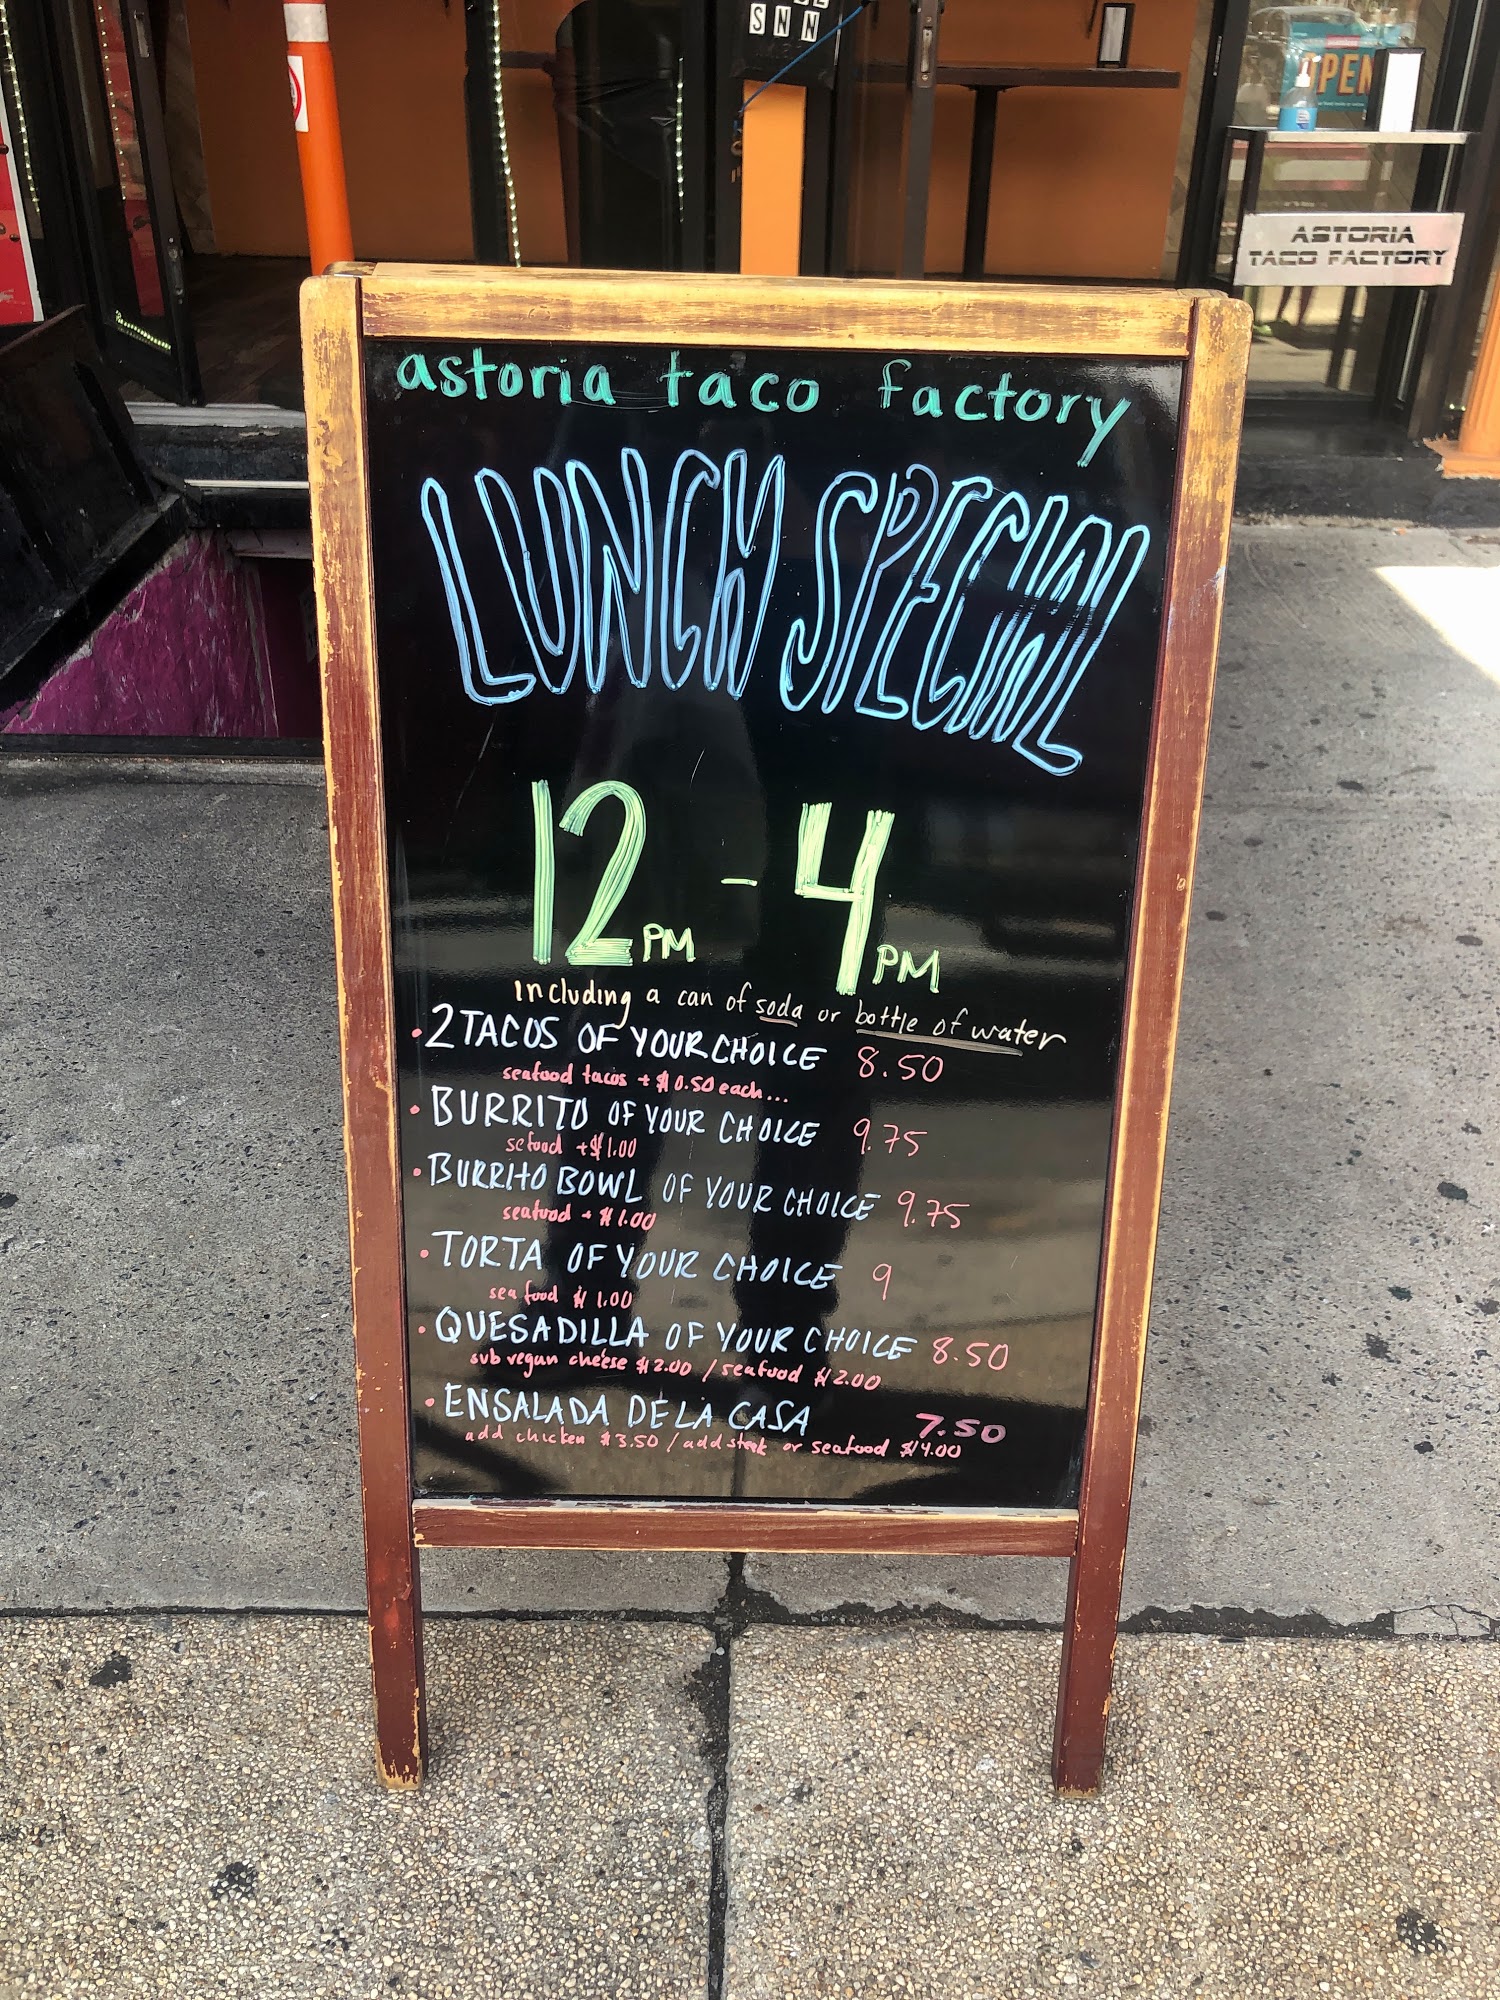 SNN
OPEN
ASTORIA
TACO FACTORY
astoria taco factory
LUNCH SPECIAL
12PM - 4PM
including a can of soda or bottle of water
• 2 TACOS OF YOUR CHOICE 8.50
seafood tacos + $0.50 each...
• BURRITO OF YOUR CHOICE 9.75
sefood + $1.00
• BURRITO BOWL OF YOUR CHOICE 9.75
seafood + $1.00
• TORTA OF YOUR CHOICE 9
seafood $1.00
• QUESADILLA OF YOUR CHOICE 8.50
sub vegan cheese $2.00 / seafood $2.00
• ENSALADA DE LA CASA 7.50
add chicken $3.50 / add steak or seafood $4.00